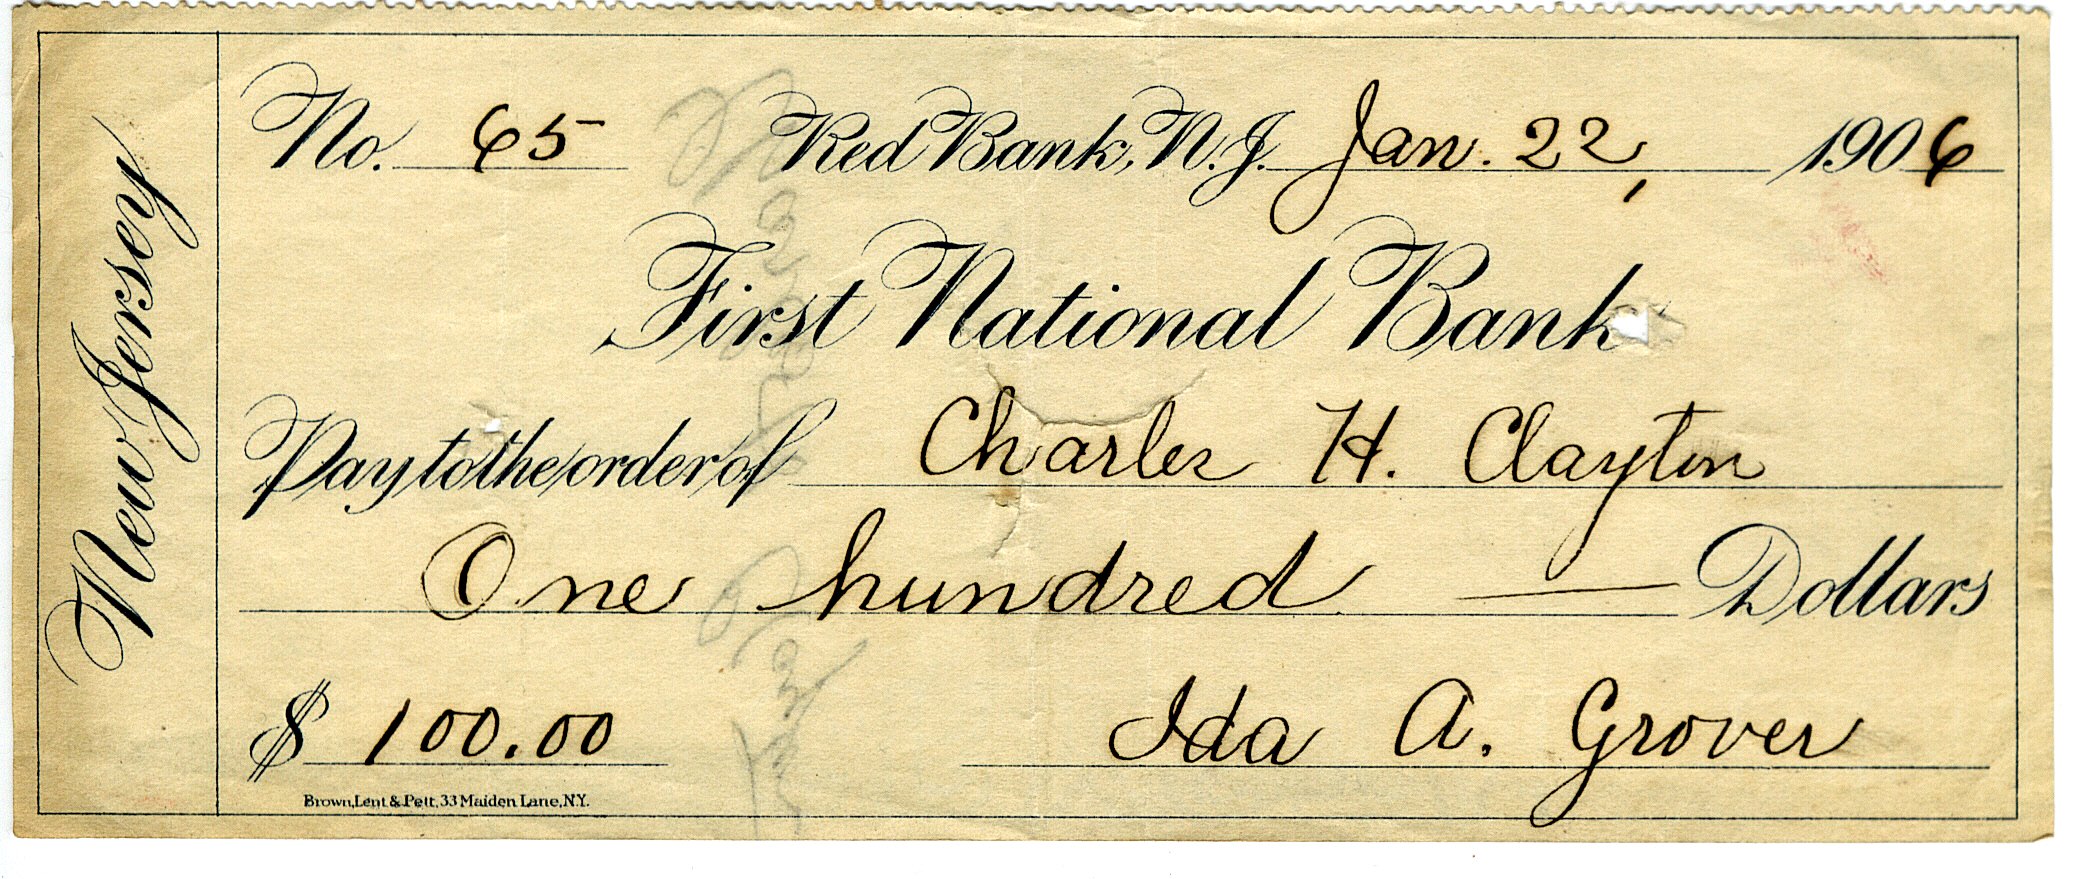 New Jersey
No. 65 Red Bank, N.J. Jan. 22, 1906
First National Bank
Pay to the order of Charles H. Clayton
One hundred — Dollars
$ 100.00 Ida A. Grover
Brown, Lent & Pett, 33 Maiden Lane, N.Y.